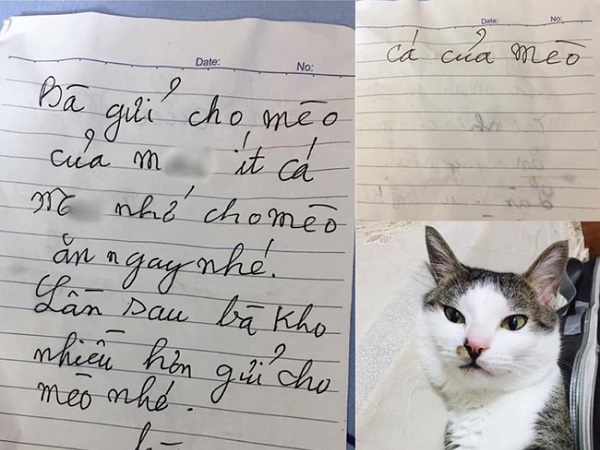 Date: No:
Bà gửi cho mèo
của m ít cá
M nhớ cho mèo
ăn ngay nhé.
Lần sau bà kho
nhiều hơn gửi cho
mèo nhé.
Date: No:
cá của mèo